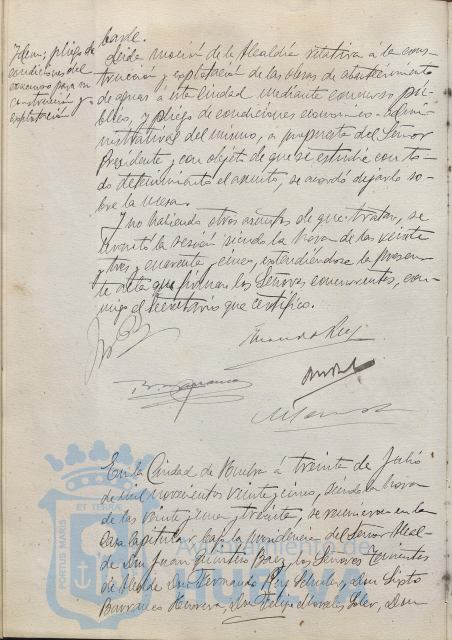 Idem; pliego de
condiciones del
concurso para su
construcción y
explotación
tarde.
Leida moción de la Alcaldía relativa á la cons-
trucción y explotación de las obras de abastecimiento
de aguas á esta Ciudad mediante concurso pú-
blico, y pliego de condiciones económico-admi-
nistrativas del mismo, á propuesta del Señor
Presidente y con objeto de que se estudie con to-
do detenimiento el asunto, se acordó dejarlo so-
bre la mesa.
Y no habiendo otros asuntos de que tratar, se
levantó la sesión siendo la hora de las veinte
y tres y cuarenta y cinco, extendiéndose la presen-
te acta que firman los Señores concurrentes, con-
migo el Secretario que certifico.
En la Ciudad de Huelva á treinta de Julio
de mil novecientos veinte y cinco, siendo la hora
de las veinte y una y treinta, se reunieron en la
Casa Capitular bajo la presidencia del Señor Alcal-
de Don Juan Quintero Baez los Señores Tenientes
de Alcalde Don Fernando Rey Don Sixto
Barranco Herrera, Don Felipe Morales Soler, Don
PORTUS MARIS ET TERRAE
Ayuntamiento de
HUELVA